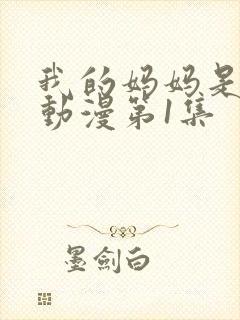 我的妈妈是
動漫第1集
墨劍白